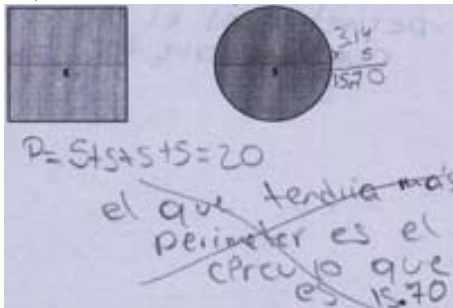 3.14
x 5
15.70
P=5+5+5+5=20
el que tendria más
perimeter es el
círculo que
es 15.70